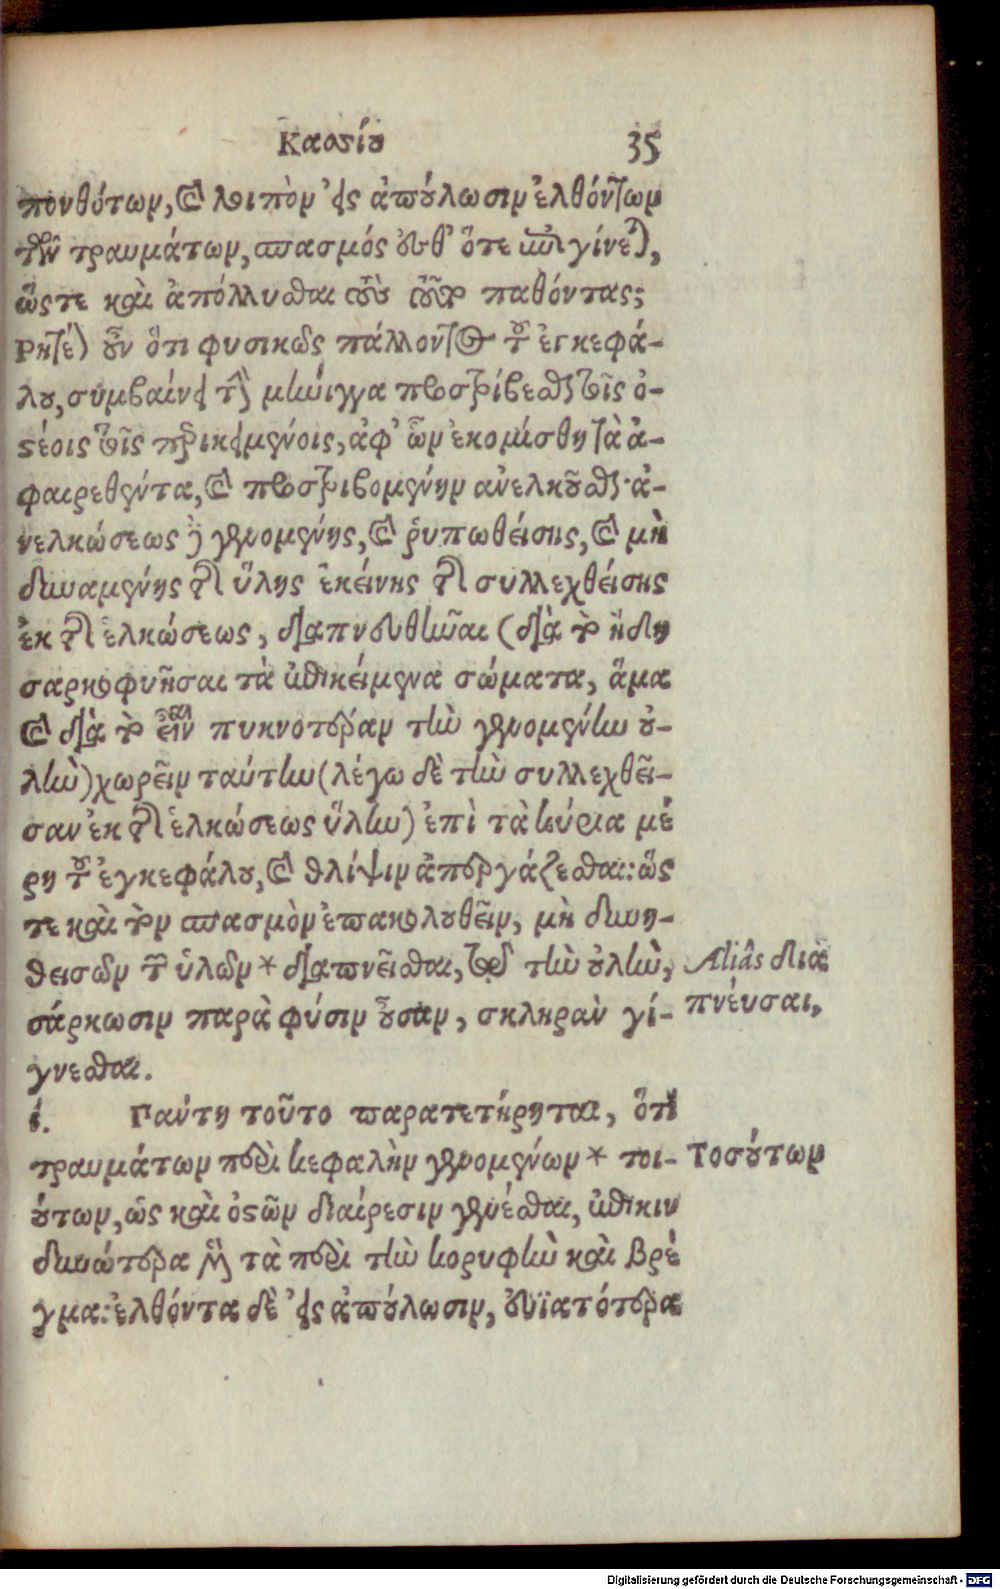 Κασσίου 35
πονθότων, καὶ λοιπὸν εἰς ἀπούλωσιν ἐλθόντων
τῶν τραυμάτων, σπασμός οὐθ' ὅτε ἐπιγίνεται,
ὥστε καὶ ἀπόλλυσθαι τοὺς οὕτω παθόντας;
Ρητέον οὖν ὅτι φυσικῶς πάλλοντος τοῦ ἐγκεφά-
λου, συμβαίνει τὴν μήνιγγα προστρίβεσθαι τοῖς ὀ-
στέοις τοῖς περικειμένοις, ἀφ' ὧν ἐκομίσθη τὰ ἀ-
φαιρεθέντα, καὶ προστριβομένην ἀνελκοῦσθαι· ἀ-
νελκώσεως δὲ γενομένης, καὶ ῥυπωθείσης, καὶ μὴ
δυναμένης τῆς ὕλης ἐκείνης τῆς συλλεχθείσης
ἐκ τῆς ἑλκώσεως, διαπνευθῆναι (διὰ τὸ ἤδη
σαρκοφυῆσαι τὰ ἐπικείμενα σώματα, ἅμα
καὶ διὰ τὸ εἶναι πυκνοτέραν τὴν γενομένην οὐ-
λὴν) χωρεῖν ταύτην (λέγω δὲ τὴν συλλεχθεῖ-
σαν ἐκ τῆς ἑλκώσεως ὕλην) ἐπὶ τὰ κύρια μέ
ρη τοῦ ἐγκεφάλου, καὶ θλίψιν ἀπεργάζεσθαι: ὥς
τε καὶ τὸν σπασμὸν ἐπακολουθεῖν, μὴ δυνη-
θεισῶν τῶν ὑλῶν * διαπνεῖσθαι, πρὸς τὴν οὐλὴν,
σάρκωσιν παρὰ φύσιν οὖσαν, σκληρὰν γί-
γνεσθαι.
Aliâs δια
πνέυσαι,
ί. Παύτη τοῦτο παρατετήρηται, ὅτι
τραυμάτων περὶ κεφαλὴν γενομένων * τοι-
ούτων, ὡς καὶ ὀστῶν διαίρεσιν γενέσθαι, ἐπικιν
δυνώτερα μὲν τὰ περὶ τὴν κορυφὴν καὶ βρέ
γμα: ἐλθόντα δὲ εἰς ἀπούλωσιν, εὐϊατότερα
Τοσούτων